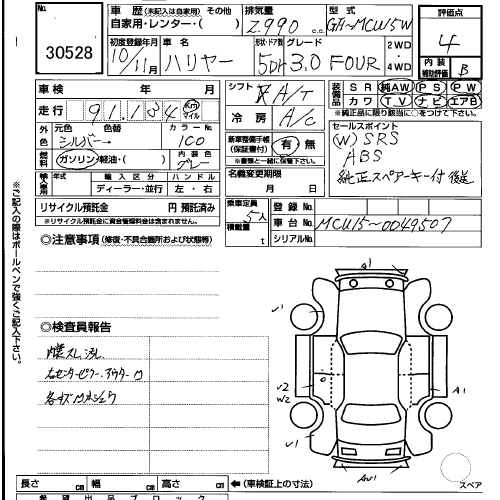 No. 30528
車歴 (未記入は自家用) その他
自家用・レンター・( )
排気量 2,990 c.c.
型式 GH-MCU15W
評価点 4
内装補助評価 B
初度登録年月 10/11月
車名 ハリヤー
形状・ドア数 5DH
グレード 3.0 FOUR
2WD・4WD
車検 年 月
シフト F A/T
装備品 SR 純AW PS PW
カワ TV ナビ エアB
※純正品に限り該当に○をつけて下さい。
走行 91,134 km マイル
冷房 A/C
セールスポイント
(W) SRS
ABS
純正スペアーキー付 後送
外色 元色 色替 シルバー→
カラーNo. 100
内装色 グレー
燃料 ガソリン・軽油・( )
新車整備手帳(保証書付) 有・無
※書類と一緒に保管して下さい。
輸入車用 年式 輸入区分 ハンドル
ディーラー・並行 左・右
名義変更期限 月 日
リサイクル預託金 円 預託済み
※リサイクル預託金に資金管理料金は含まれません。
乗車定員 5人
積載量 t
登録No.
車台No. MCU15-0049507
シリアルNo.
◎注意事項 (修復・不具合箇所および状態等)
◎検査員報告
内装スレ汚れ
各キズ
A1
V1
V2
W2
A1
V1
AW1
スペア
長さ cm 幅 cm 高さ cm ←(車検証上の寸法)
※ご記入の際はボールペンで強くご記入下さい。